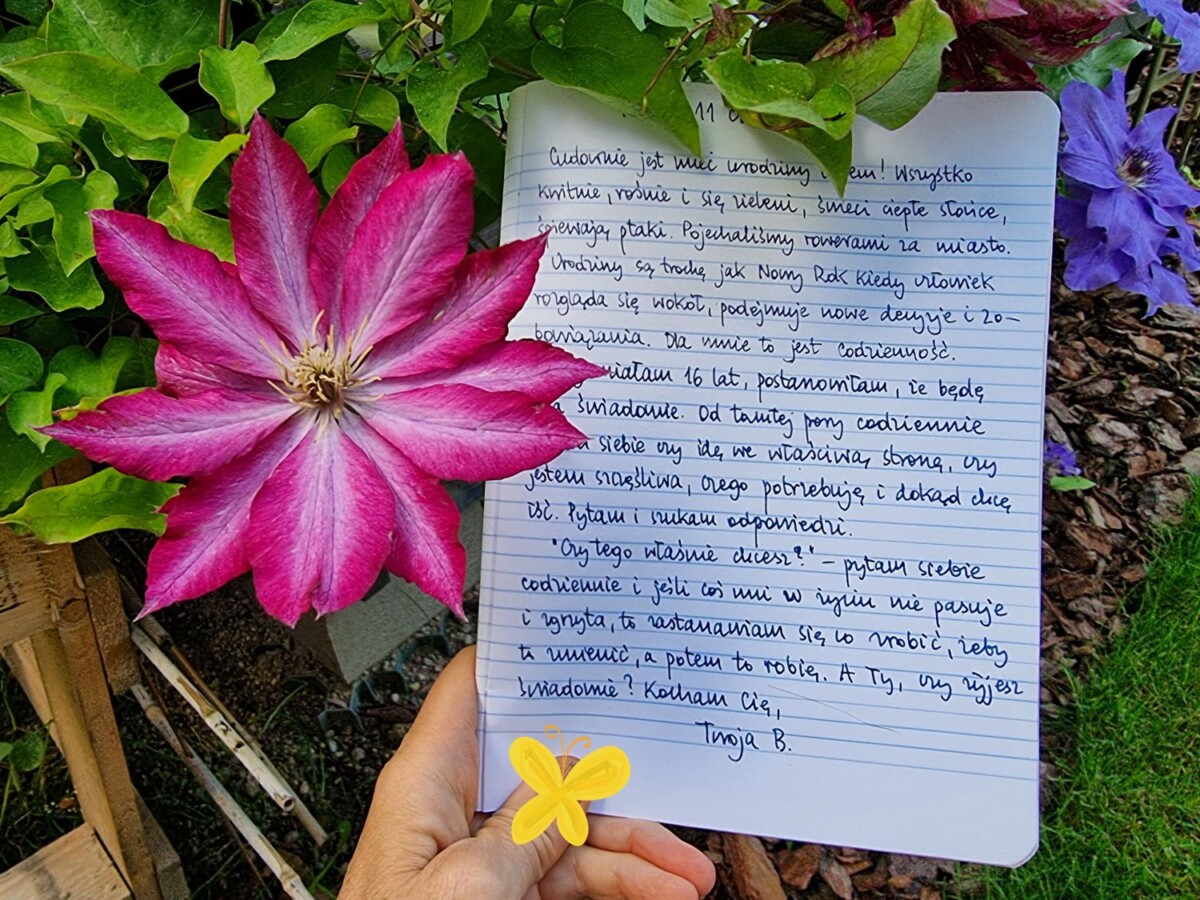 11
Cudownie jest mieć urodziny! Wszystko
kwitnie, rośnie i się zieleni, świeci ciepłe słońce,
śpiewają ptaki. Pojechaliśmy rowerami za miasto.
Urodziny są trochę jak Nowy Rok kiedy człowiek
rozgląda się wokół, podejmuje nowe decyzje i zo-
bowiązania. Dla mnie to jest codzienność.
miałam 16 lat, postanowiłam, że będę
świadomie. Od tamtej pory codziennie
siebie czy idę we właściwą stronę, czy
jestem szczęśliwa, czego potrzebuję i dokąd chcę
iść. Pytam i szukam odpowiedzi.
"Czy tego właśnie chcesz?" – pytam siebie
codziennie i jeśli coś mi w życiu nie pasuje
i zgrzyta, to zastanawiam się co zrobić, żeby
to zmienić, a potem to robię. A Ty, czy żyjesz
świadomie? Kocham Cię,
Twoja B.